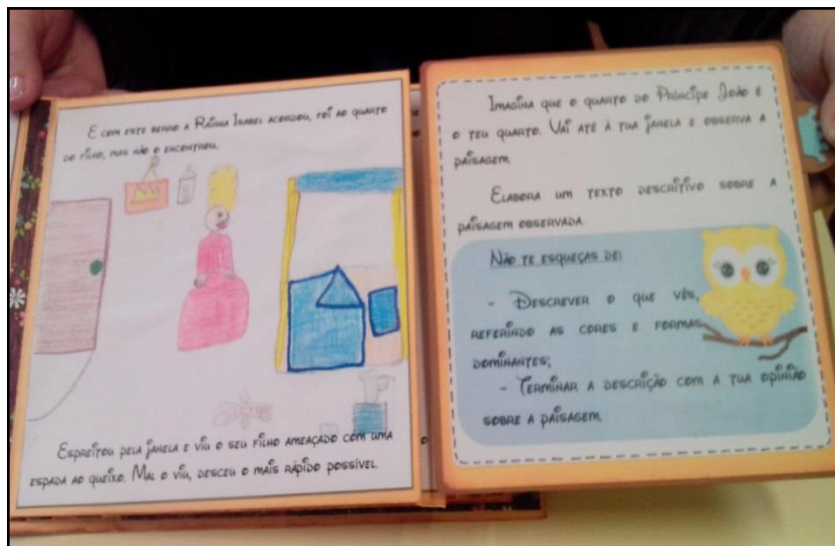 E com este berro a Rainha Isabel acordou, foi ao quarto
do filho, mas não o encontrou.
Espreitou pela janela e viu o seu filho ameaçado com uma
espada ao queixo. Mal o viu, desceu o mais rápido possível.
Imagina que o quarto do Príncipe João é
o teu quarto. Vai até à tua janela e observa a
paisagem.
Elabora um texto descritivo sobre a
paisagem observada.
Não te esqueças de:
- Descrever o que vês,
referindo as cores e formas
dominantes;
- Terminar a descrição com a tua opinião
sobre a paisagem.